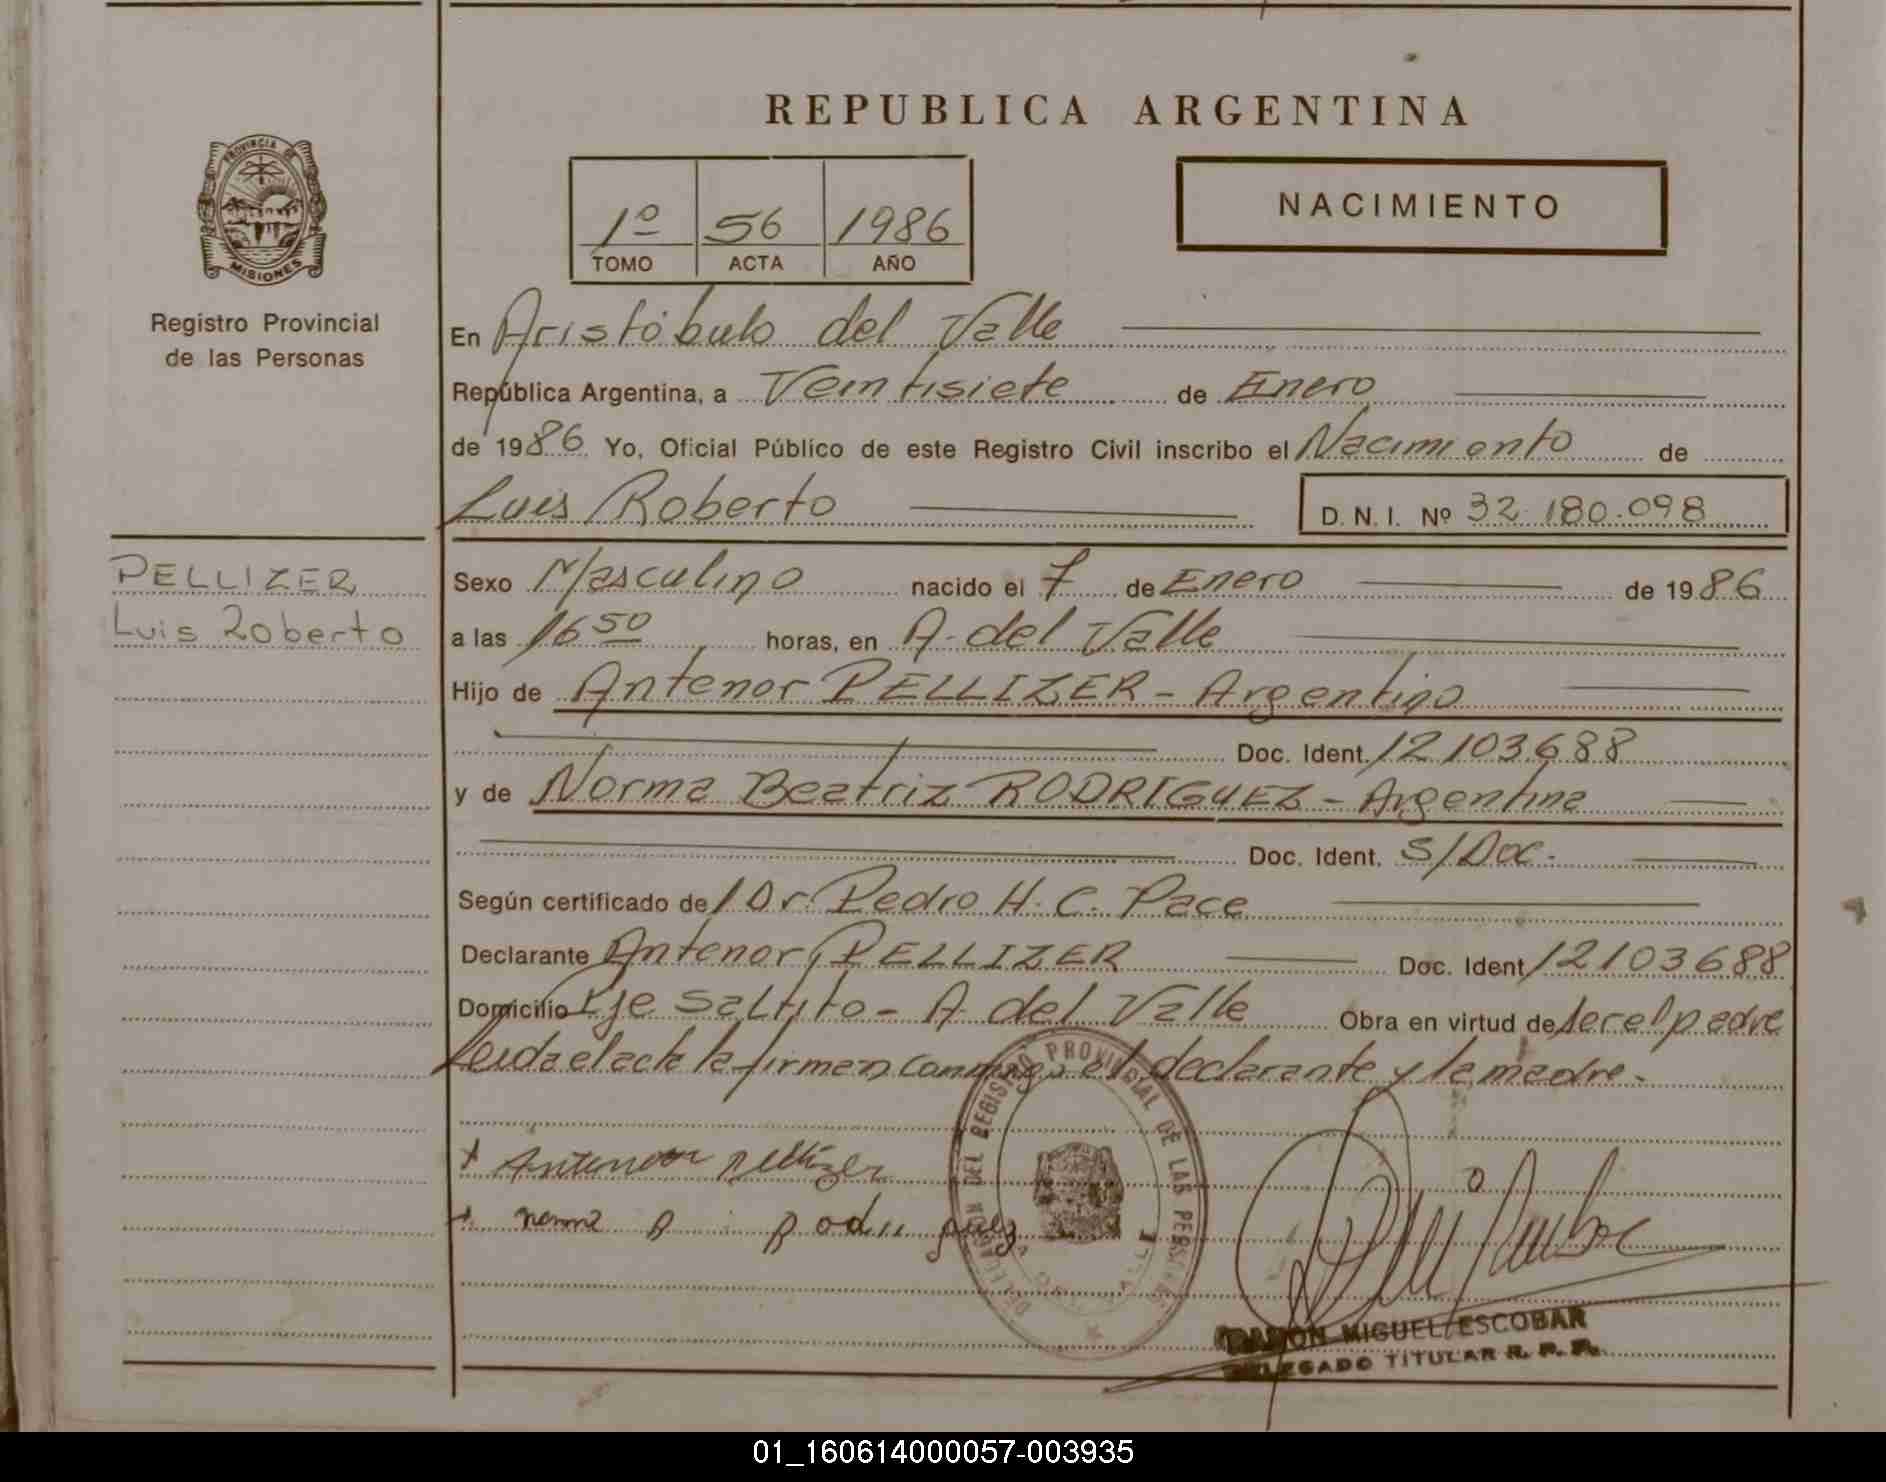 REPUBLICA ARGENTINA
PROVINCIA DE
MISIONES
Registro Provincial
de las Personas
1º 56 1986
TOMO ACTA AÑO
NACIMIENTO
En Aristóbulo del Valle
República Argentina, a Veintisiete de Enero
de 1986. Yo, Oficial Público de este Registro Civil inscribo el Nacimiento de
Luis Roberto D. N. I. Nº 32.180.098
PELLIZER
Luis Roberto
Sexo Masculino nacido el 7 de Enero de 1986
a las 16 50 horas, en A. del Valle
Hijo de Antenor PELLIZER - Argentino
Doc. Ident. 12103688
y de Norma Beatriz RODRIGUEZ - Argentina
Doc. Ident. S/Doc.
Según certificado del Dr. Pedro H. C. Pace
Declarante Antenor PELLIZER Doc. Ident 12103688
Domicilio Pje Saltito - A. del Valle Obra en virtud de ser el padre
Leida el acta la firman conmigo el declarante y la madre.
DELEGACION DEL REGISTRO PROVINCIAL DE LAS PERSONAS
+ Antenor pellizer
+ norma B Rodriguez
RAMON MIGUEL ESCOBAR
DELEGADO TITULAR R. P. P.
01_160614000057-003935